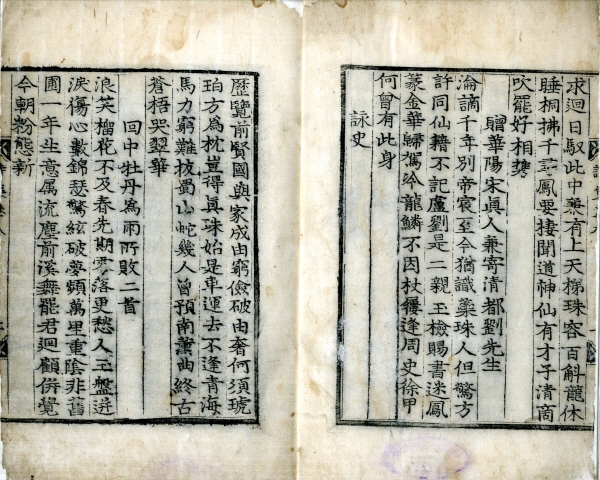 求迴日馭此中兼有上天梯珠容百斛龍休
睡桐拂千尋鳳要棲聞道神仙有才子清商
吹罷好相携
贈華陽宋眞人兼寄清都劉先生
淪謫千年別帝宸至今猶識蘂珠人但驚方
許同仙籍不記盧劉是二親玉檢賜書迷鳳
篆金華歸駕冷龍鱗不因杖屨逢周史徐甲
何曾有此身
詠史
歷覽前賢國與家成由窮儉破由奢何須琥
珀方爲枕豈得眞珠始是車運去不逢青海
馬力窮難拔蜀山蛇幾人曾預南薰曲終古
蒼梧哭翠華
回中牡丹爲雨所敗二首
浪笑榴花不及春先期零落更愁人玉盤迸
淚傷心數錦瑟驚絃破夢頻萬里重陰非舊
圃一年生意属流塵前溪舞罷君迴顧併覺
今朝粉態新